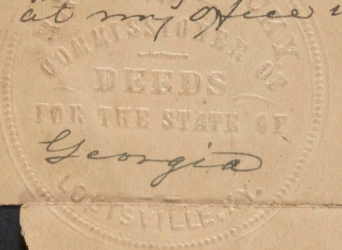 at my office
COMMISSIONER OF
DEEDS
FOR THE STATE OF
Georgia
LOUISVILLE, KY.